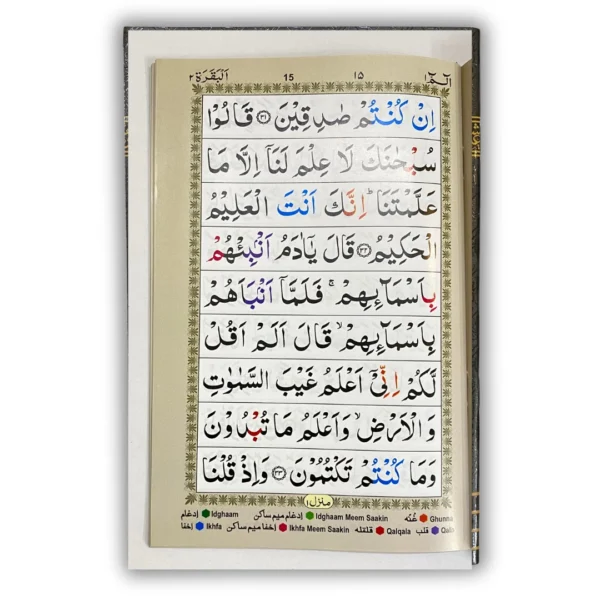 البقرة ٢ 15 ١٥ الٓمّٓ ١
اِنْ كُنْتُمْ صٰدِقِیْنَ ۝۳۱ قَالُوْا
سُبْحٰنَكَ لَا عِلْمَ لَنَاۤ اِلَّا مَا
عَلَّمْتَنَا ؕ اِنَّكَ اَنْتَ الْعَلِیْمُ
الْحَكِیْمُ ۝۳۲ قَالَ یٰۤاٰدَمُ اَنْۢبِئْهُمْ
بِاَسْمَآىِٕهِمْ ۚ فَلَمَّاۤ اَنْۢبَاَهُمْ
بِاَسْمَآىِٕهِمْ ۙ قَالَ اَلَمْ اَقُلْ
لَّكُمْ اِنِّیْۤ اَعْلَمُ غَیْبَ السَّمٰوٰتِ
وَ الْاَرْضِ ۙ وَ اَعْلَمُ مَا تُبْدُوْنَ
وَ مَا كُنْتُمْ تَكْتُمُوْنَ ۝۳۳ وَ اِذْ قُلْنَا
منزل ١
إدغام Idghaam إدغام ميم ساكن Idghaam Meem Saakin غُنّه Ghunna
إخفا Ikhfa إخفا ميم ساكن Ikhfa Meem Saakin قلقله Qalqala قلب